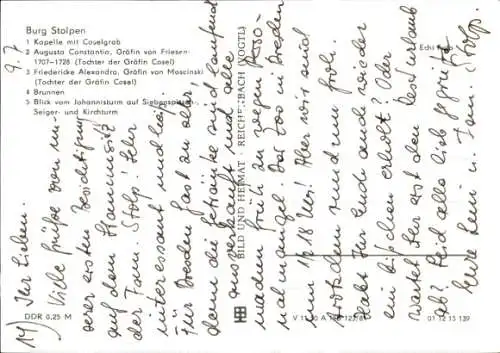 Burg Stolpen
1 Kapelle mit Coselgrab
2 Augusta Constantia, Gräfin von Friesen
1707-1728 (Tochter der Gräfin Cosel)
3 Friedericke Alexandra, Gräfin von Moscinski
(Tochter der Gräfin Cosel)
4 Brunnen
5 Blick vom Johannisturm auf Siebenspitzen-,
Seiger- und Kirchturm
Echt Foto
BILD UND HEIMAT · REICHENBACH (VOGTL)
DDR 0,25 M
01 12 13 139
14) Ihr Lieben.
9.7
Viele Grüße von un
serer ersten Besichtigung
auf dem Stammsitz
der Fam. Stolp! Sehr
interessant und lief.
Für Dresden fast zu aller
denn die Getränke sind laufend
ausverkauft und alle
machen früh zu wegen Perso-
nalmangel. Der Zoo in Dresden
um 18 Uhr! Aber wir sind
trotzdem rundum froh.
Habt Ihr Euch auch wieder
ein bißchen erholt? Oder
wartet Ihr erst den Resturlaub
ab? Seid alle lieb gegrüßt
Eure u. Fam. Stolp.